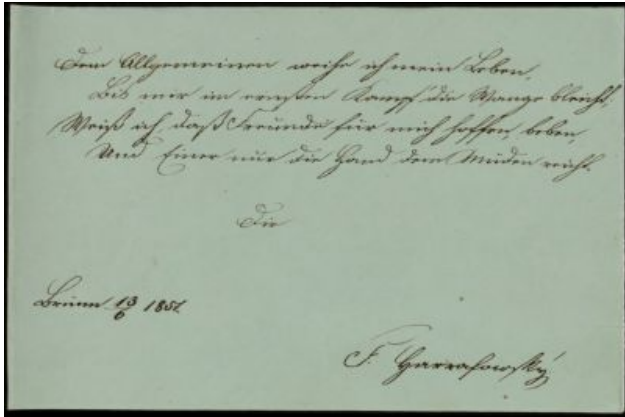 Dem Allgemeinen weihe ich mein Leben,
Bis mir im ernsten Kampf die Wange bleicht,
Weiß ich, daß Freunde für mich hoffen, beben,
Und Einer nur die Hand dem Müden reicht.
Die
Brünn 13/6 1857
F.